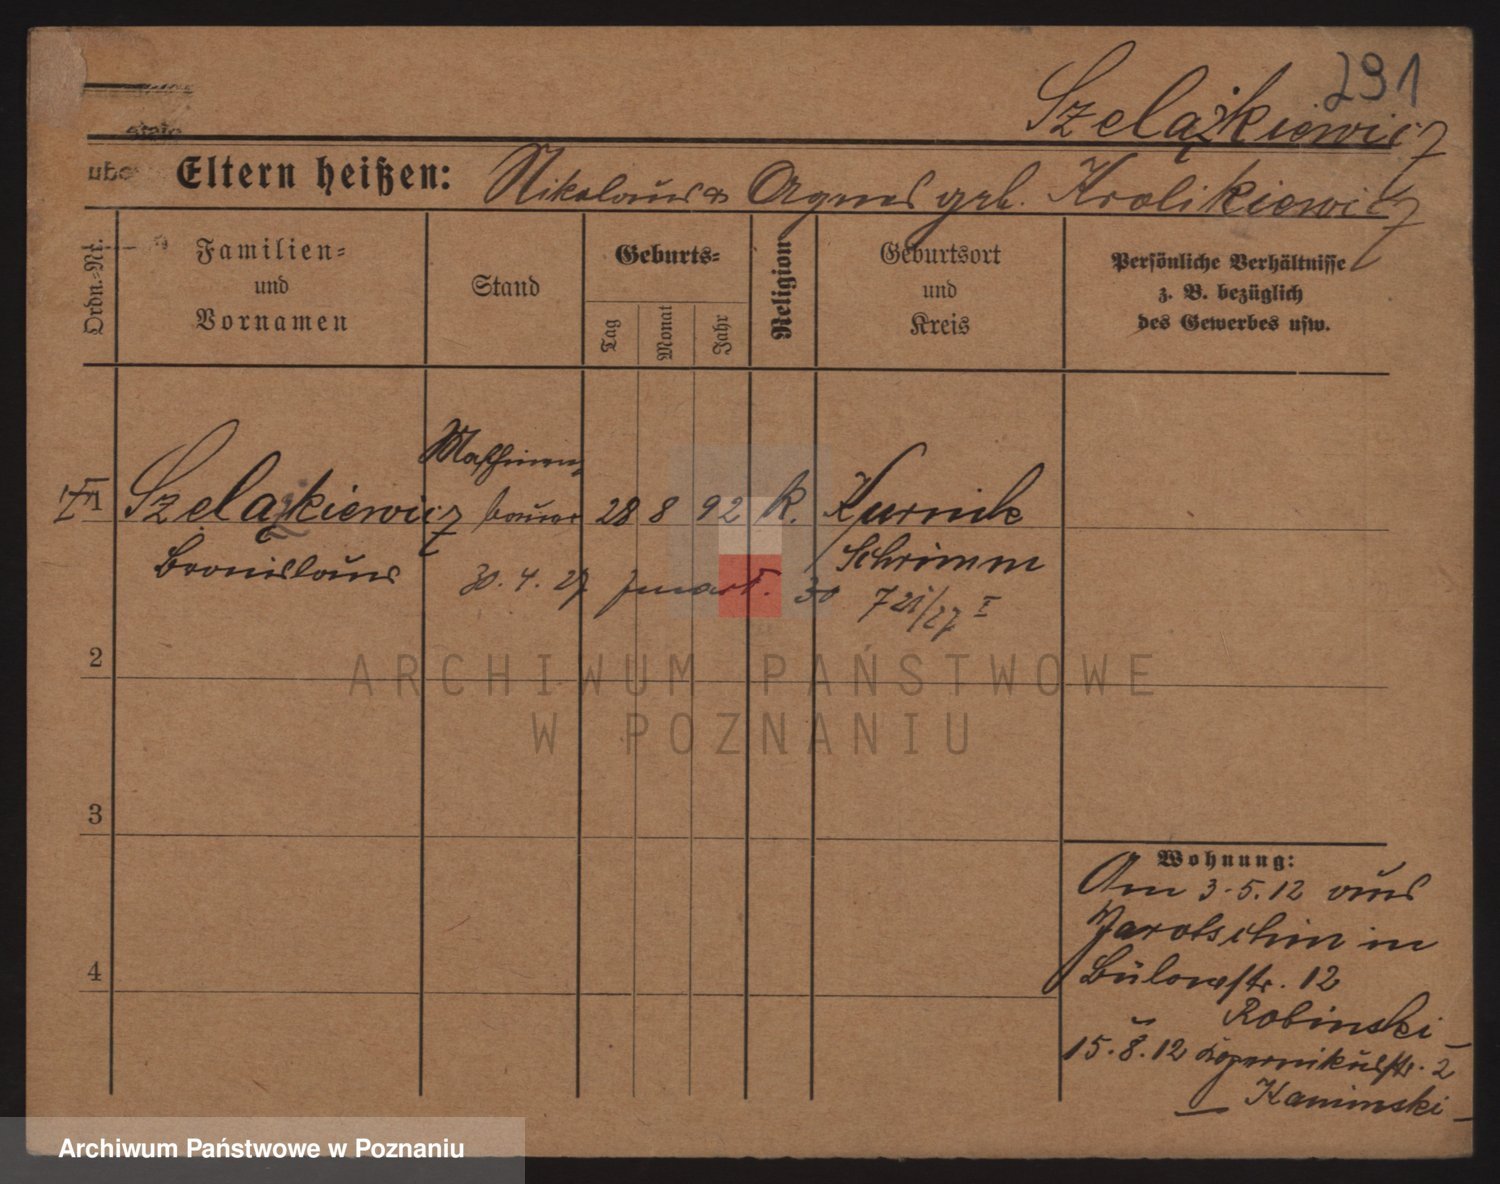 291
Szelążkiewicz
Eltern heißen: Nikolaus & Agnes geb. Krolikiewicz
Ordn.-Nr.
Familien-
und
Vornamen
Stand
Geburts-
Tag
Monat
Jahr
Religion
Geburtsort
und
Kreis
Persönliche Verhältnisse
z. B. bezüglich
des Gewerbes usw.
Maschinen
1 Szelążkiewicz bauer 28 8 92 k. Kurnik
Bronislaus Schrimm
30. 4. 27 30
2
3
4
ARCHIWUM PAŃSTWOWE
W POZNANIU
Wohnung:
Am 3.5.12 aus
Jarotschin in
Bülowstr. 12
Robinski
15.8.12 Kopernikusstr. 2
Kaminski
Archiwum Państwowe w Poznaniu